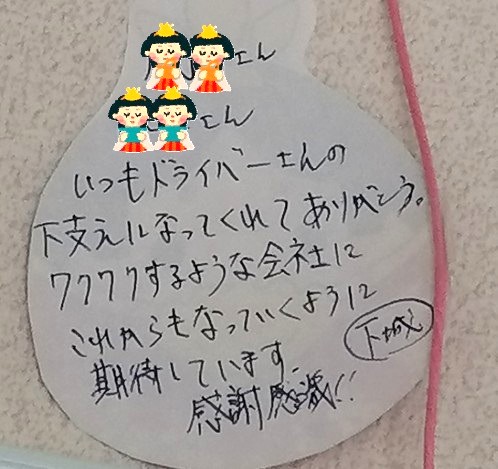 さん
さん
いつもドライバーさんの
下支えになってくれてありがとう。
ワクワクするような会社に
これからもなっていくように
期待しています。
下城
感謝感激!!